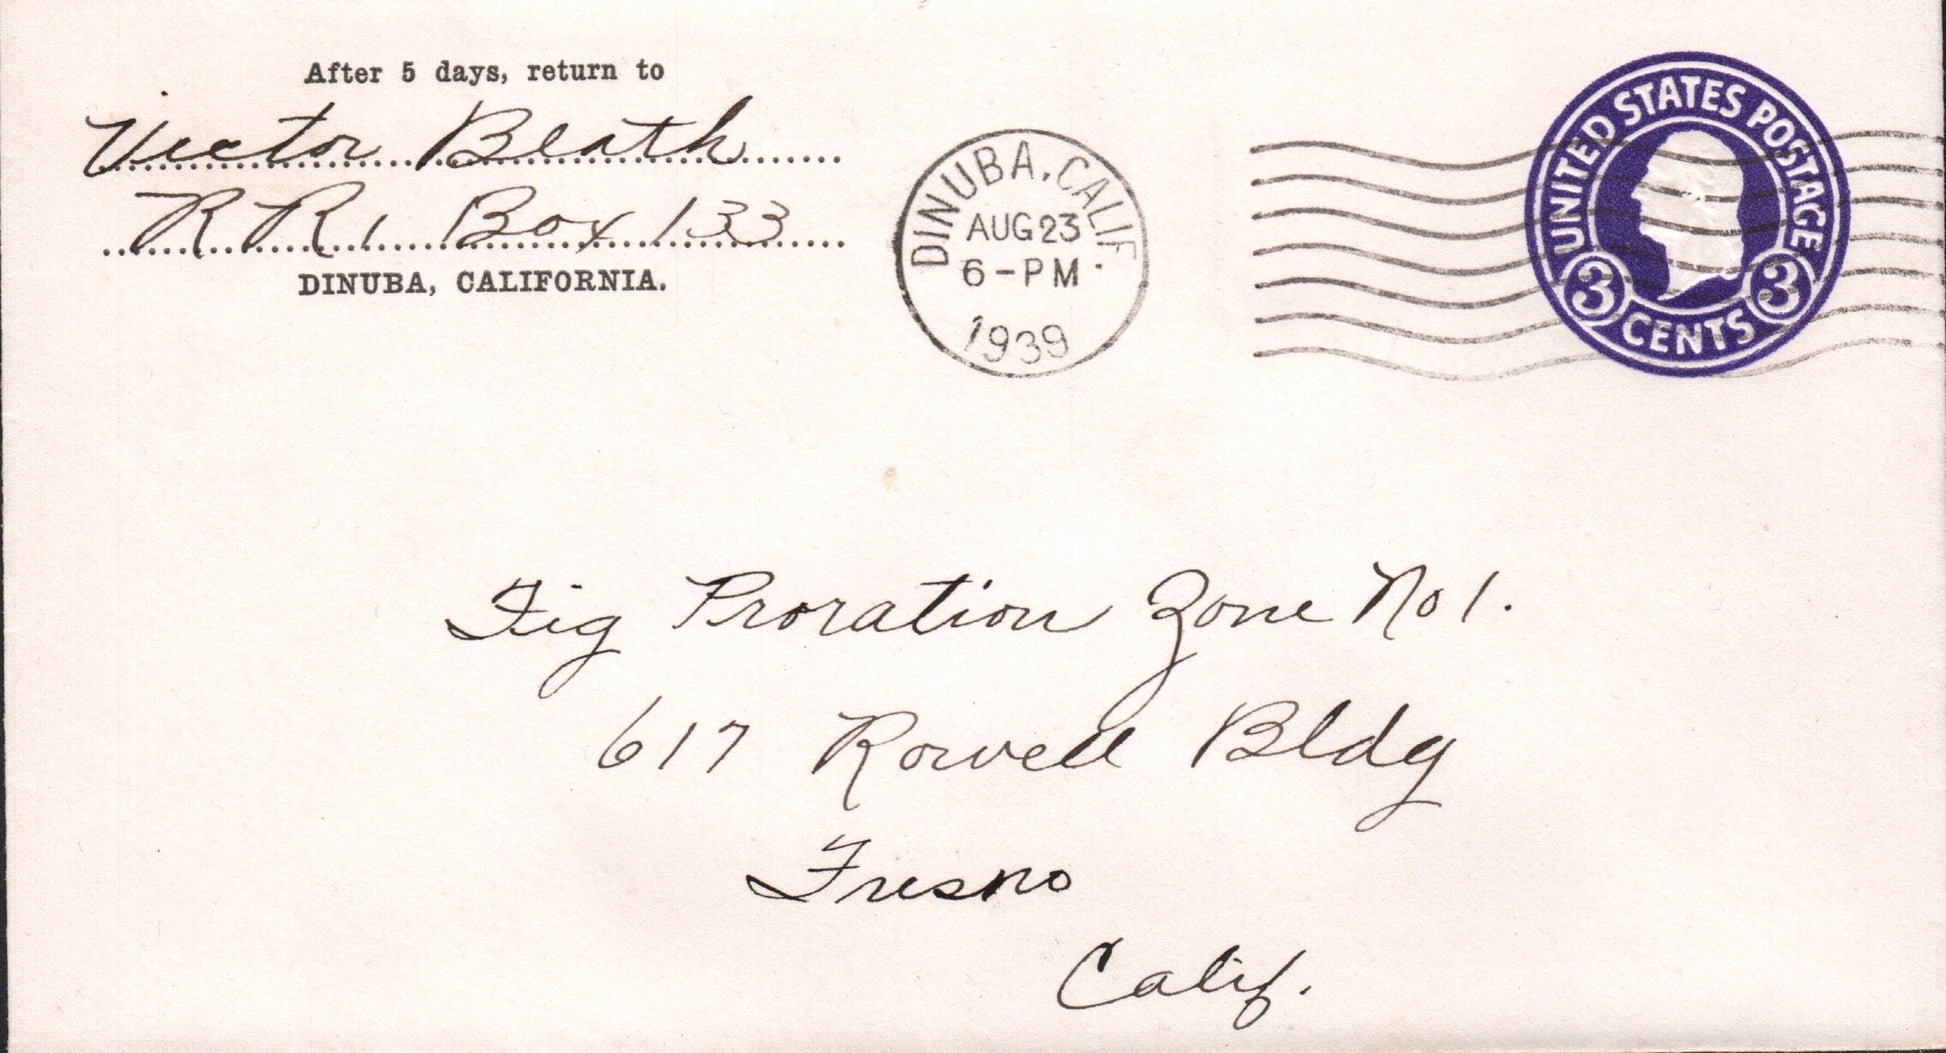 After 5 days, return to
Victor Blath
R R 1 Box 133
DINUBA, CALIFORNIA.
DINUBA, CALIF
AUG 23
6-PM
1939
UNITED STATES POSTAGE
3 CENTS 3
Fig Proration Zone No 1.
617 Rowell Bldg
Fresno
Calif.